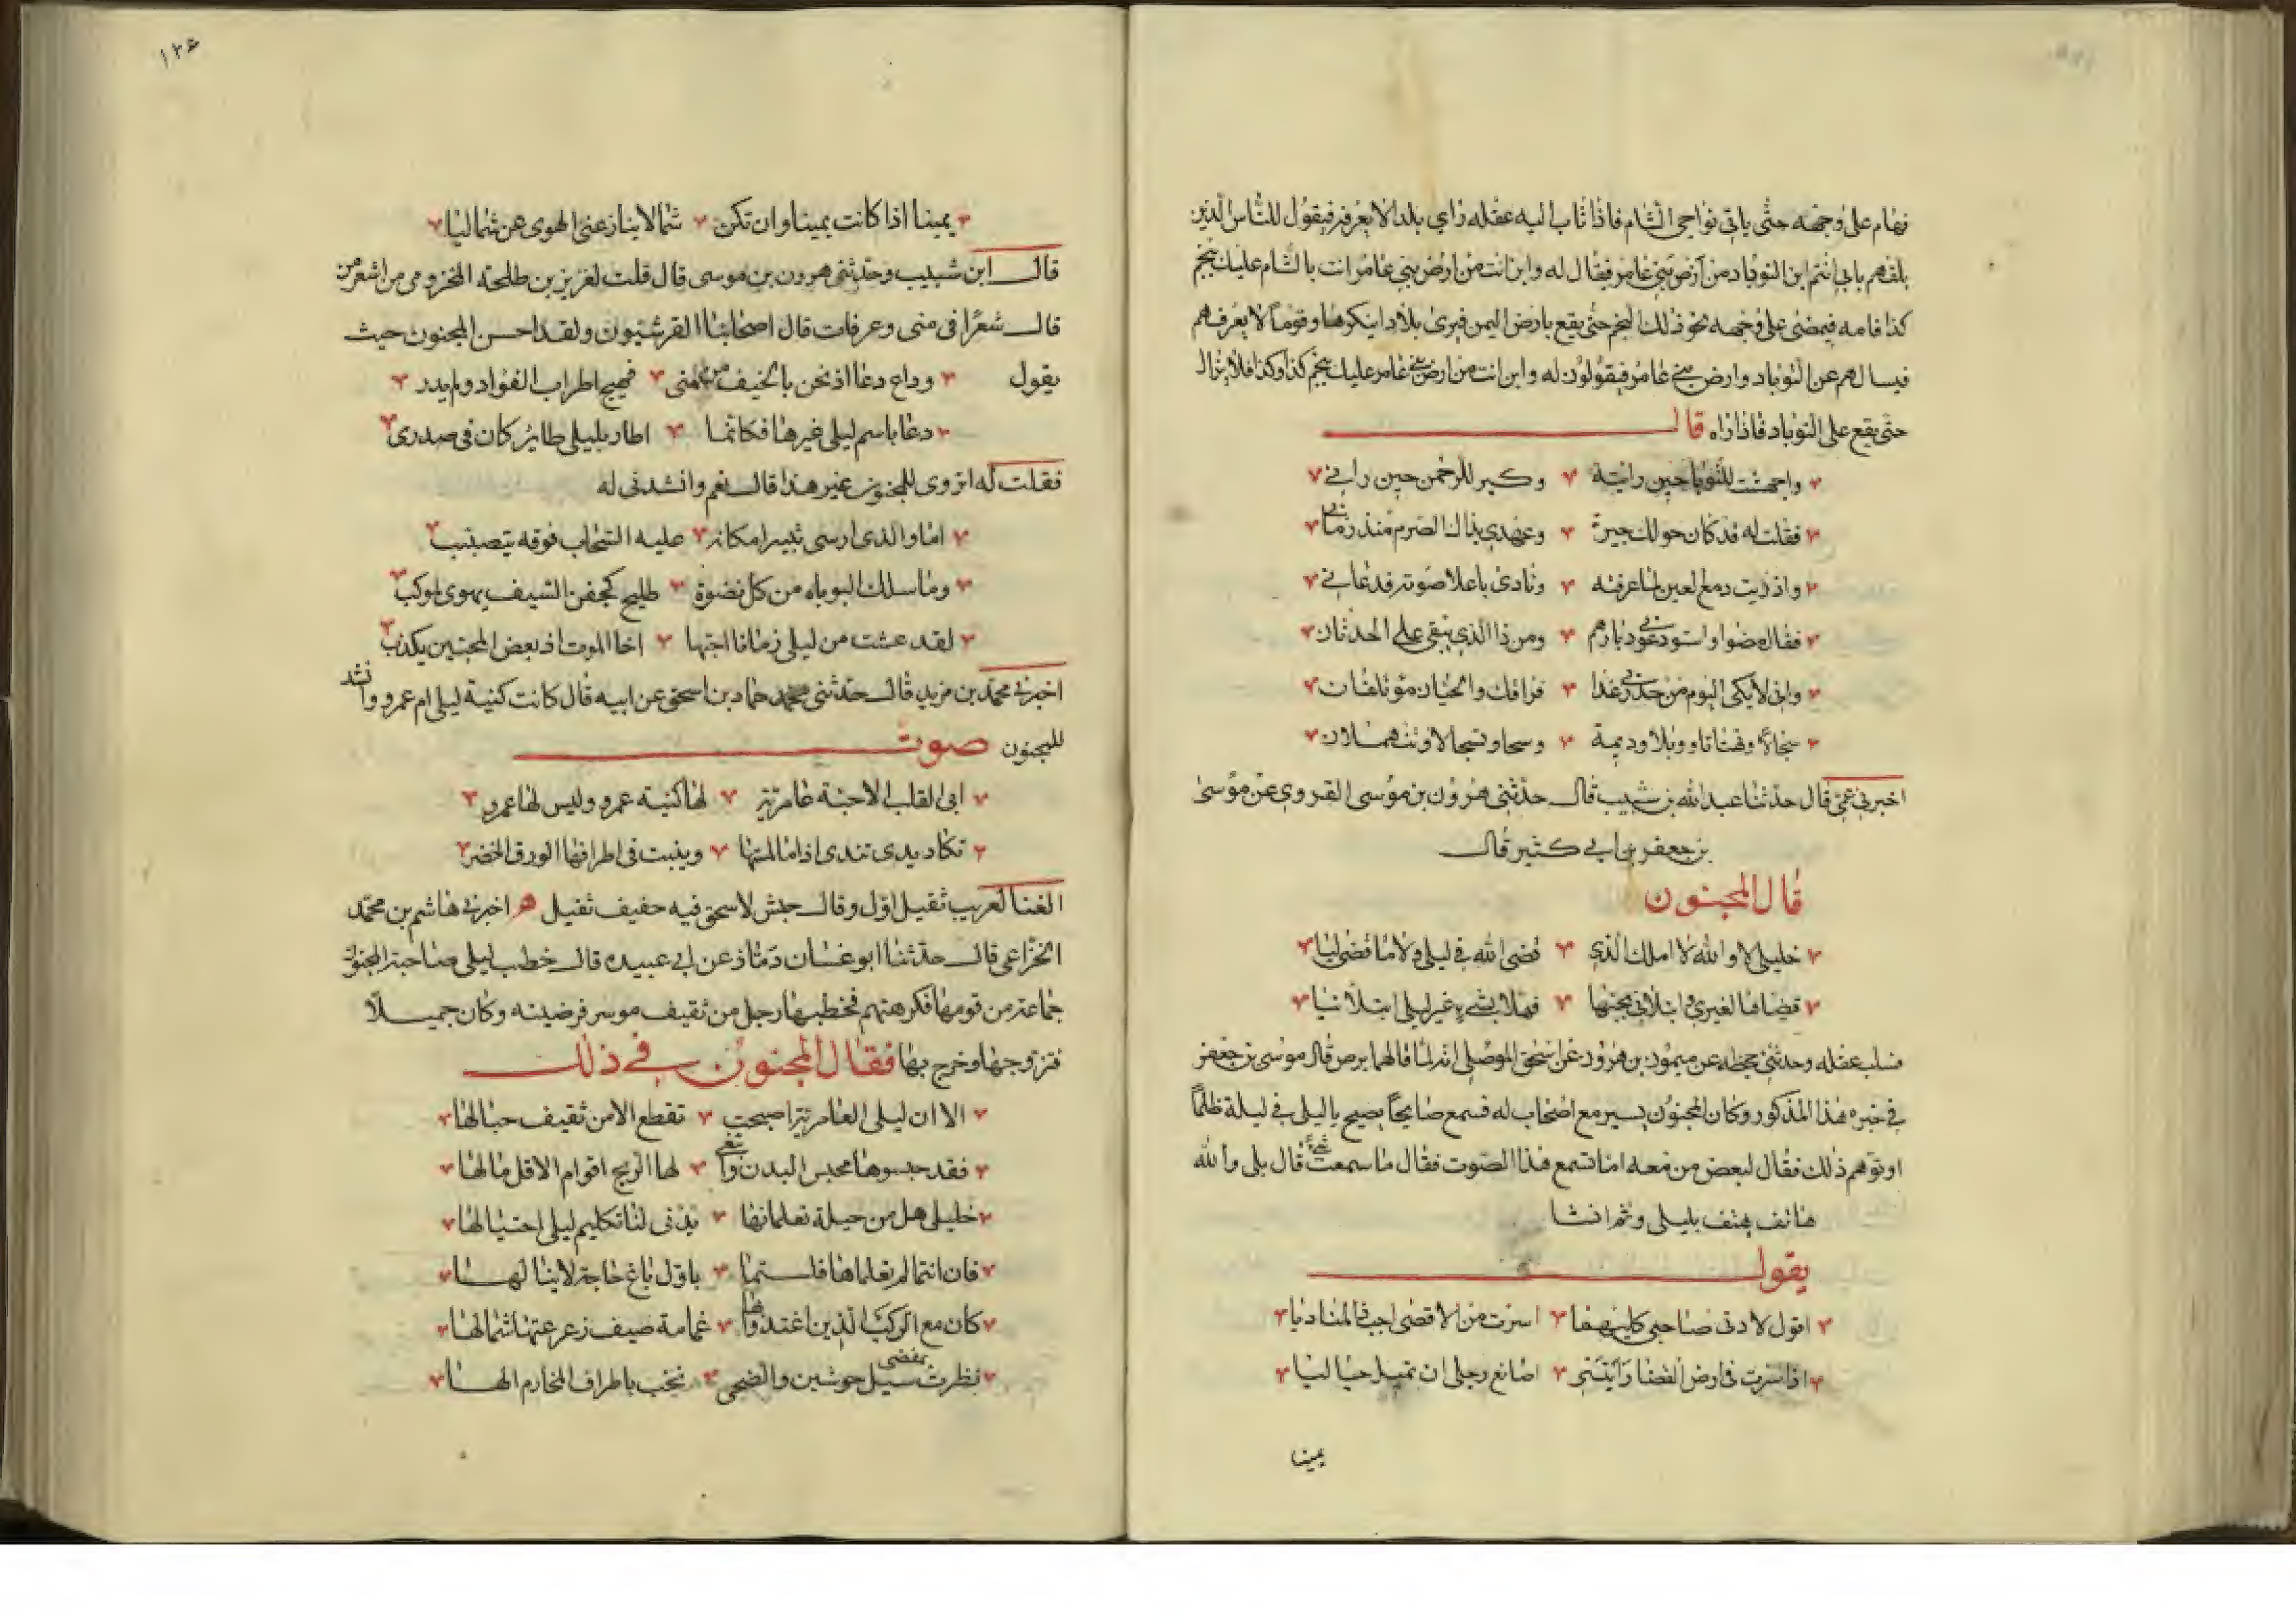 فهام على وجهه حتى ياتي نواحي الشام فاذا ثاب اليه عقله راي بلدا لا يعرفه فيقول للناس الذين
يلقاهم بابي انتم اين التوباد من ارض بني عامر فيقال له واين انت من ارض بني عامر انت بالشام عليك بنجم
كذا فامه فيمضي على وجهه نحو ذلك النجم حتى يقع بارض اليمن فيرى بلادا ينكرها وقوما لا يعرفهم
فيسالهم عن التوباد وارض بني عامر فيقولون له واين انت من ارض بني عامر عليك بنجم كذا وكذا فلا يزال
حتى يقع على التوباد فاذا راه قال
واجهشت للتوباد حين رايته وكبر للرحمن حين راني
فقلت له قد كان حولك جيرة وعهدي بذاك الصرم منذ زمان
واذريت دمع العين لما عرفته ونادى باعلا صوته فدعاني
فقال مضوا واستودعوني ديارهم ومن ذا الذي يبقى على الحدثان
واني لابكي اليوم من حذري غدا فراقك والحيان مؤتلفان
سجالا وتهتانا ووبلا وديمة وسحا وتسجالا وتنهملان
اخبرني عمي قال حدثنا عبد الله بن شبيب قال حدثني هرون بن موسى القروي عن موسى
بن جعفر بن ابي كثير قال
قال المجنون
خليلي لا والله لا املك الذي قضى الله في ليلى ولا ما قضى ليا
قضاها لغيري وابتلاني بحبها فهلا بشيء غير ليلى ابتلانيا
فسلب عقله وحدثني جحظه عن ميمون بن هرون عن اسحق الموصلي انه لما قالهما برص قال موسى بن جعفر
في خبره هذا المذكور وكان المجنون يسير مع اصحاب له فسمع صايحا يصيح يا ليلى في ليلة ظلما
او توهم ذلك فقال لبعض من معه اما تسمع هذا الصوت فقال ما سمعت شيئا قال بلى والله
هاتف يهتف بليلى وثم انشا
يقول
اقول لادنى صاحبي كليهما اسرت من الاقصى اجب ذا المناديا
اذا سرت في ارض الفضا رايتني اصانع رجلي ان تميل حياليا
يمينا
١٢٤
يمينا اذا كانت يمينا وان تكن شمالا ينازعني الهوى عن شماليا
قال ابن شبيب وحدثني هرون بن موسى قال قلت لغرير بن طلحة المخزومي من اشعر من
قال شعرا في منى وعرفات قال اصحابنا القرشيون ولقد احسن المجنون حيث
يقول وداع دعا اذ نحن بالخيف من منى فهيج اطراب الفؤاد ولم يدر
دعا باسم ليلى غيرها فكانما اطار بليلى طاير كان في صدري
فقلت له اتروي للمجنون غير هذا قال نعم وانشدني له
اما والذي ارسى ثبيرا مكانه عليه السحاب فوقه يتصبب
وما سلك البوباه من كل نضوة طليح كجفن السيف يهوى لموكب
لقد عشت من ليلى زمانا احبها اخا الموت اذ بعض المحبين يكذب
اخبرني محمد بن مزيد قال حدثني حماد بن اسحق عن ابيه قال كانت كنية ليلى ام عمرو وانشد
للمجنون صوت
ابى القلب الا حبه عامرية لها كنيه عمرو وليس لها عمرو
تكاد يدي تندى اذا ما لمستها وينبت في اطرافها الورق الخضر
الغنا لعريب ثقيل اول وقال حبش لاسحق فيه خفيف ثقيل اخبرني هاشم بن محمد
الخزاعي قال حدثنا ابو غسان دماذ عن ابي عبيده قال خطب ليلى صاحبة المجنون
جماعة من قومها فكرهتهم فخطبها رجل من ثقيف موسر فرضيته وكان جميلا
فتزوجها وخرج بها فقال المجنون في ذلك
الا ان ليلى العامرية اصبحت تقطع الا من ثقيف حبالها
فقد حبسوها محبس البدن وابتغى لها الربح اقوام الا قل مالها
خليلي هل من حيلة تعلمانها يدني لنا تكليم ليلى احتيالها
فان انتما لم تعلماها فلستما باول باغ حاجة لا ينالها
كان مع الركب الذين اغتدوا بها غمامة صيف زعزعتها شمالها
نظرت بمفضى سيل جوشين والضحى تخب باطراف المخارم الها